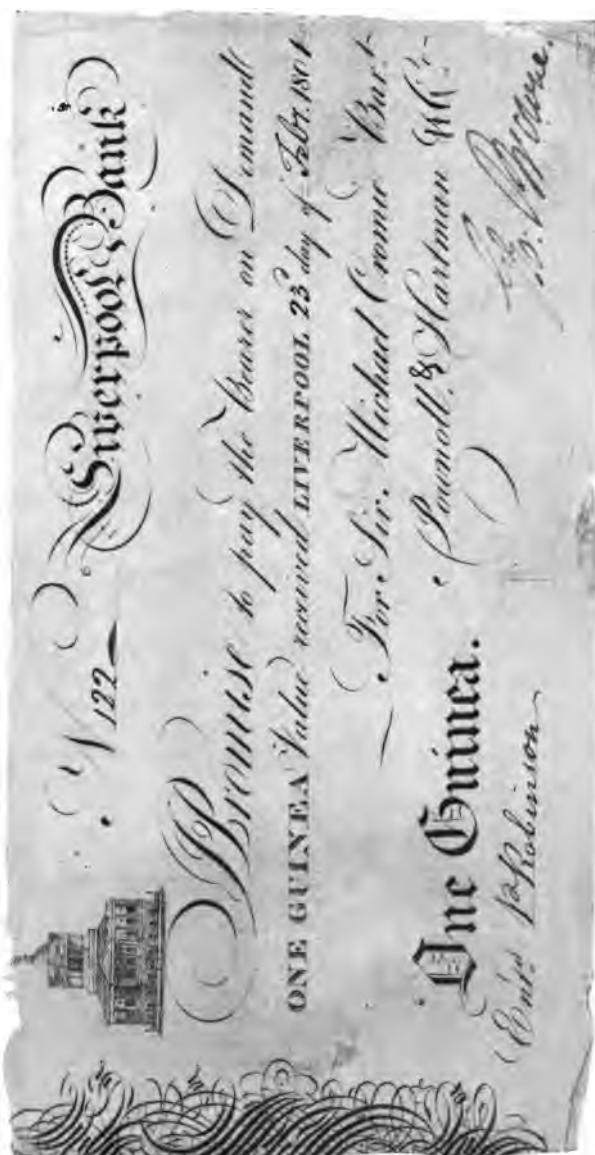 No 122 Liverpool Bank
I Promise to pay the Bearer on Demand
ONE GUINEA Value received LIVERPOOL 23 day of Feby. 1801
For Sir. Michael Cromie Bart.
Pownoll, & Hartman
One Guinea.
Entd. P Robinson